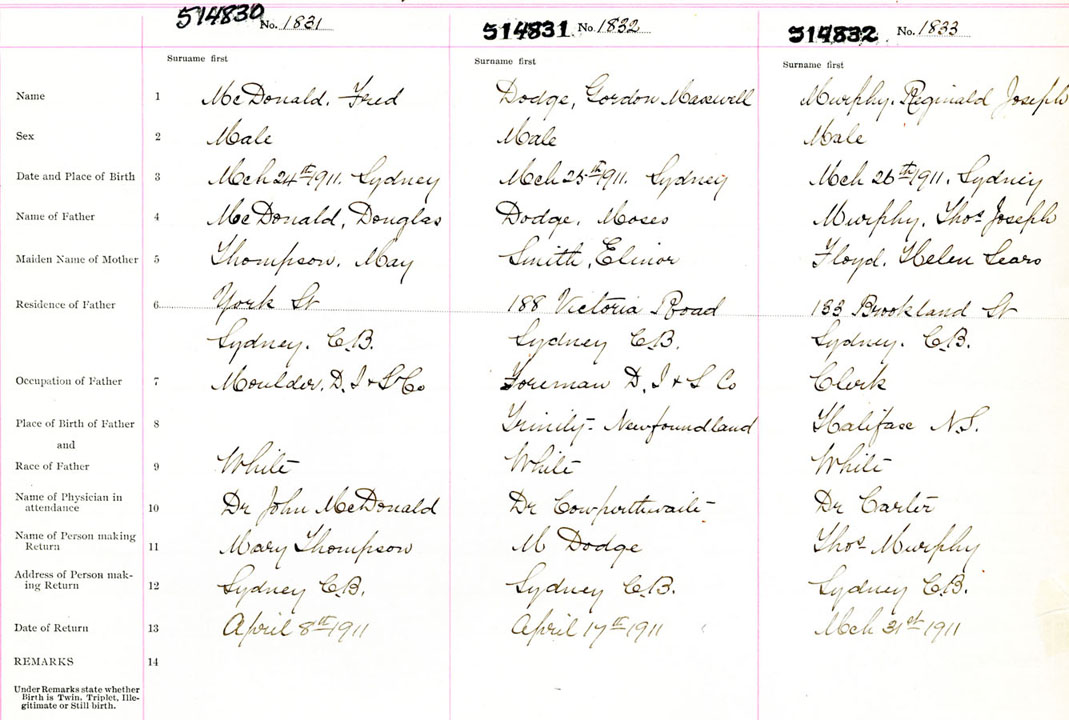 514830 No. 1831 514831 No. 1832 514832 No. 1833
Surname first Surname first Surname first
Name 1 McDonald, Fred Dodge, Gordon Maxwell Murphy, Reginald Joseph
Sex 2 Male Male Male
Date and Place of Birth 3 Mch 24th 1911. Sydney Mch 25th 1911. Sydney Mch 26th 1911. Sydney
Name of Father 4 McDonald, Douglas Dodge, Moses Murphy, Thos Joseph
Maiden Name of Mother 5 Thompson, May Smith, Elinor Floyd, Helen Sears
Residence of Father 6 York St 188 Victoria Road 133 Brookland St
Sydney. C.B. Sydney C.B. Sydney. C.B.
Occupation of Father 7 Moulder, D. I & S Co Foreman D. I & S Co Clerk
Place of Birth of Father 8 Trinity - Newfoundland Halifax N.S.
and
Race of Father 9 White White White
Name of Physician in
attendance 10 Dr John McDonald Dr Cowperthwaite Dr Carter
Name of Person making
Return 11 Mary Thompson M Dodge Thos Murphy
Address of Person mak-
ing Return 12 Sydney C.B. Sydney C.B. Sydney C.B.
Date of Return 13 April 8th 1911 April 17th 1911 Mch 31st 1911
REMARKS 14
Under Remarks state whether
Birth is Twin, Triplet, Ille-
gitimate or Still birth.